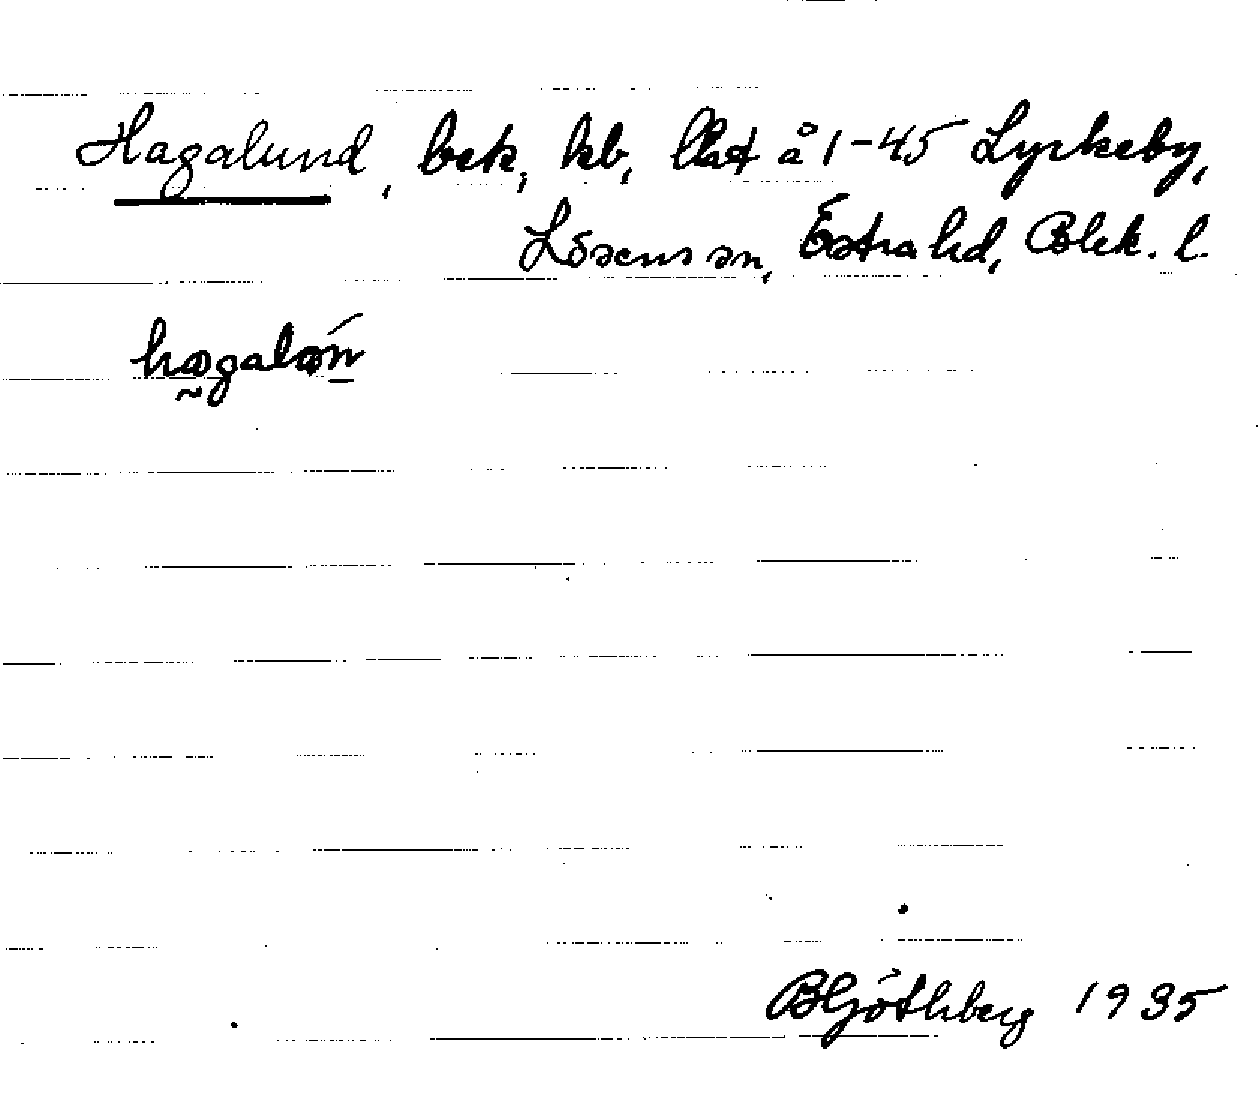 Hagalund, bek, kb, lhet å 1-45 Lyckeby,
Lösens sn, Östra hd, Blek. l.
hagalon
B Göthberg 1935